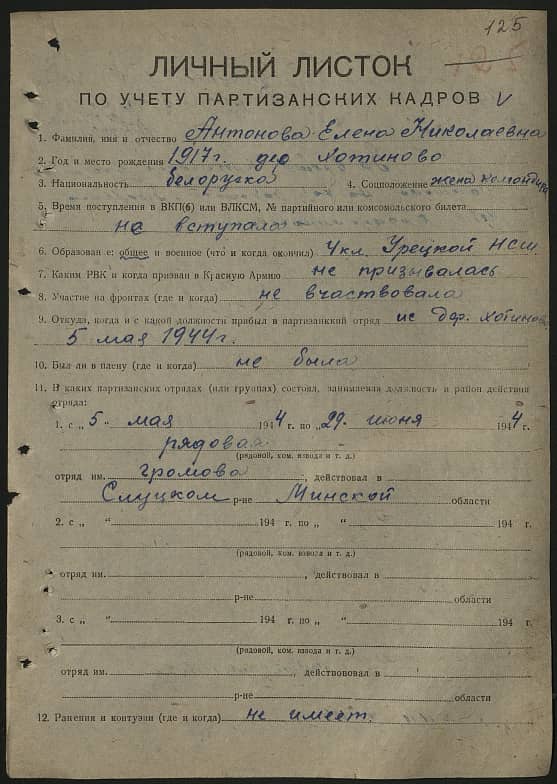 125
ЛИЧНЫЙ ЛИСТОК
ПО УЧЕТУ ПАРТИЗАНСКИХ КАДРОВ V
1. Фамилия, имя и отчество Антонова Елена Николаевна
2. Год и место рождения 1917г. дер Хотиново
3. Национальность белоруска 4. Соцположение жена командира
5. Время поступления в ВКП(б) или ВЛКСМ, № партийного или комсомольского билета
не вступала
6. Образование: общее и военное (что и когда окончил) 4 кл. Урецкой НСШ
7. Каким РВК и когда призван в Красную Армию не призывалась
8. Участие на фронтах (где и когда) не вчаствовала
9. Откуда, когда и с какой должности прибыл в партизанский отряд ис дер. Хотиново
5 мая 1944г.
10. Был ли в плену (где и когда) не была
11. В каких партизанских отрядах (или группах) состоял, занимаемая должность и район действия
отряда:
1. с „ 5 " мая 1944 г. по „ 29 " июня 1944 г.
рядовая
(рядовой, ком. взвода и т. д.)
отряд им. громова, действовал в
Слуцком р-не Минской области
2. с „ " 194 г. по „ " 194 г.
(рядовой, ком. взвода и т. д.)
отряд им. , действовал в
р-не области
3. с „ " 194 г. по „ " 194 г.
(рядовой, ком. взвода и т. д.)
отряд им. , действововал в
р-не области
12. Ранения и контузии (где и когда) не имеет.